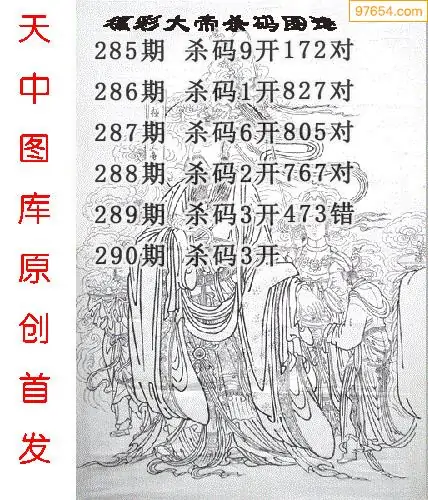 97654.com
福彩大帝杀码图迷
285期 杀码9开172对
286期 杀码1开827对
287期 杀码6开805对
288期 杀码2开767对
289期 杀码3开473错
290期 杀码3开
天中图库原创首发